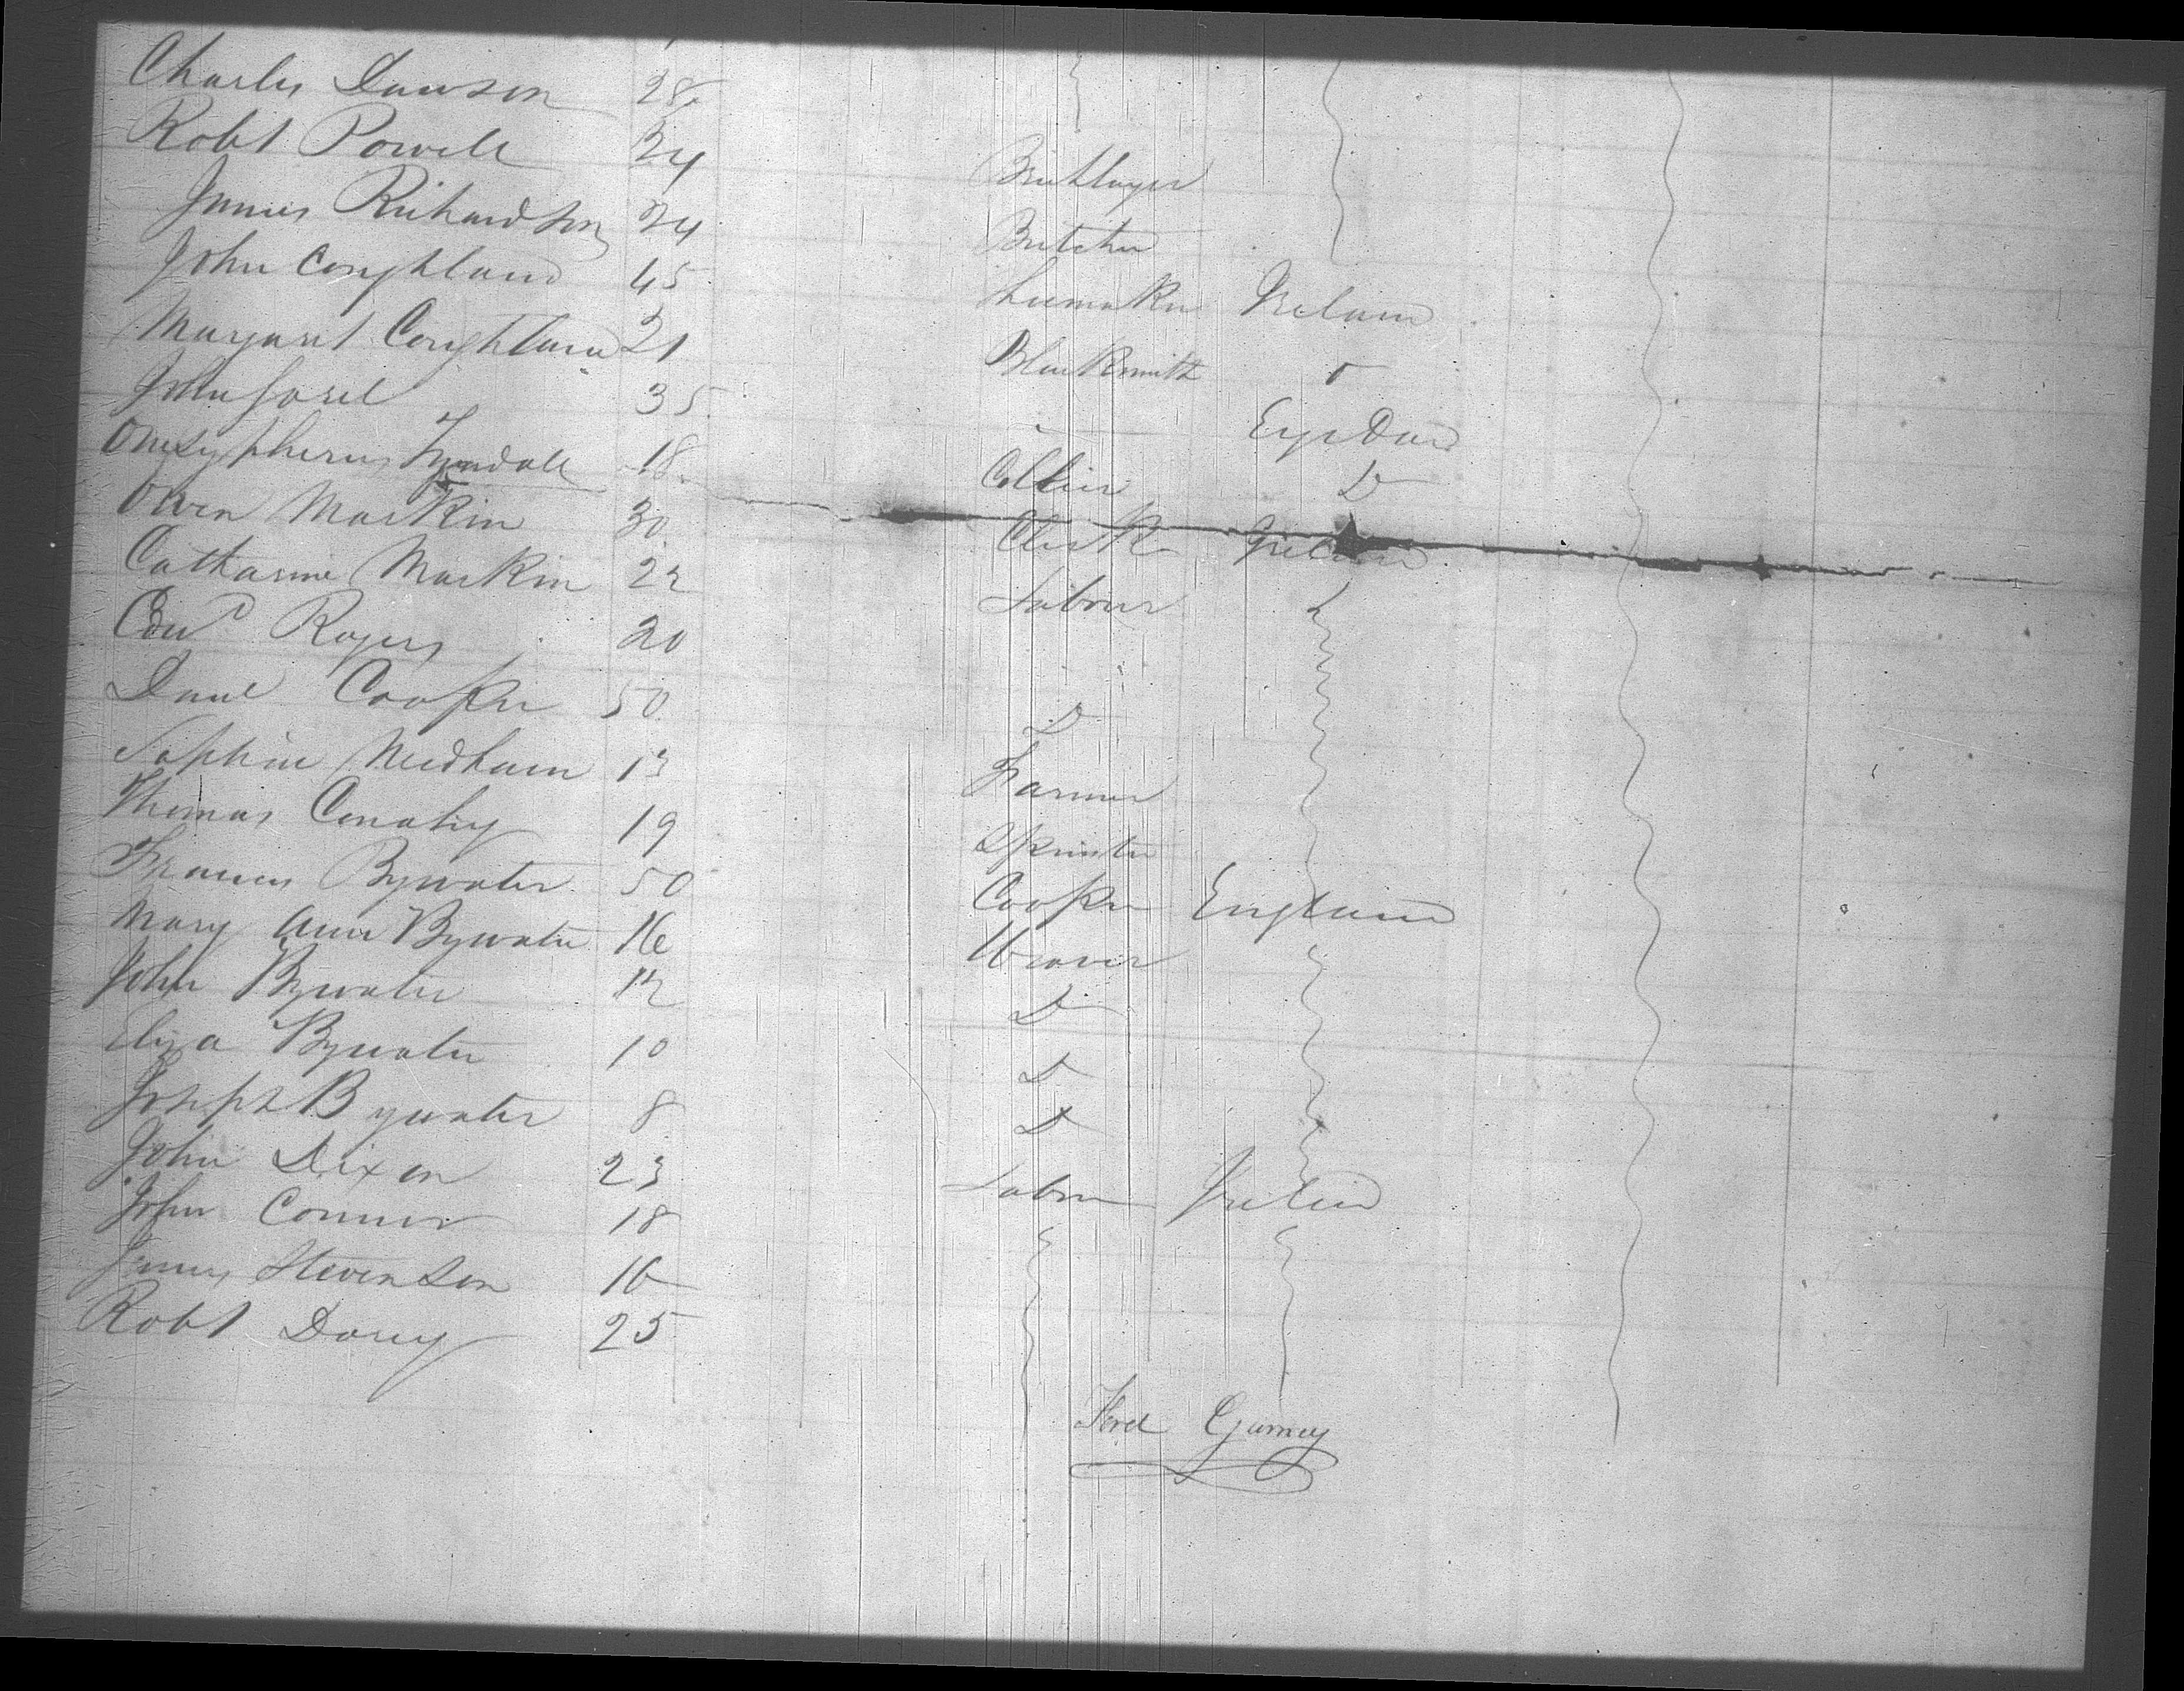 Charles Dawson 28
Robt Powell 24 Bricklayer
James Richardson 24 Butcher
John Coughland 45 Shumaker Ireland
Margaret Coughland 21 Blacksmith
John 35
Onesypherus Tyndall 18 Collier D
Owen Markin 30 Clerk Ireland
Catharine Markin 22 Labour
Edwd Rogers 20
Danl Cooper 50 D
Needham 13 Farmer
Thomas 19 Spinster
Frances Bywater 50 Cooper England
Mary Ann Bywater 16 Weaver
John Bywater 12 D
Eliza Bywater 10 D
Joseph Bywater 8 D
John Dixon 23 Labour Ireland
John Connor 18
James Stevenson 16
Robt 25
Gurney